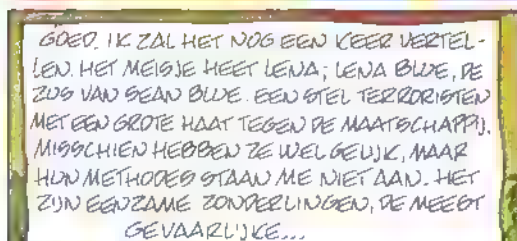 GOED. IK ZAL HET NOG EEN KEER VERTEL-
LEN. HET MEISJE HEET LENA; LENA BLUE, DE
ZUS VAN SEAN BLUE. EEN STEL TERRORISTEN
MET EEN GROTE HAAT TEGEN DE MAATSCHAPPIJ.
MISSCHIEN HEBBEN ZE WEL GELIJK, MAAR
HUN METHODES STAAN ME NIET AAN. HET
ZIJN EENZAME ZONDERLINGEN, DE MEEST
GEVAARLIJKE...